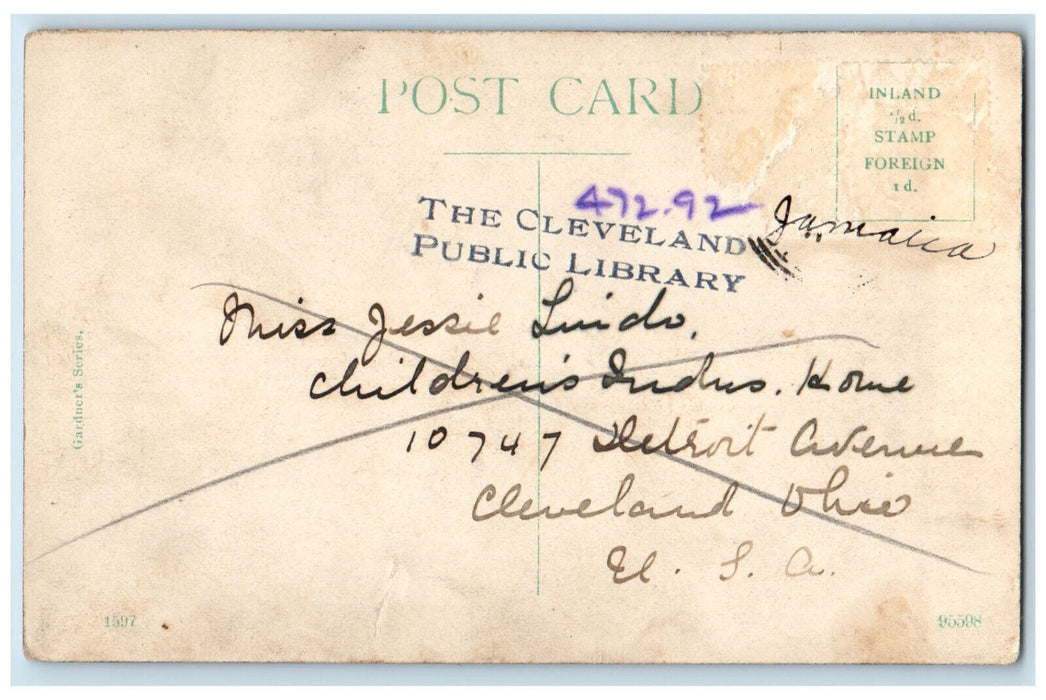 POST CARD
INLAND
½d.
STAMP
FOREIGN
1d.
472.92
Jamaica
THE CLEVELAND
PUBLIC LIBRARY
Miss Jessie Lindo,
Children's Indus. Home
10747 Detroit Avenue
Cleveland Ohio
U. S. A.
Gardner's Series.
1597
95598